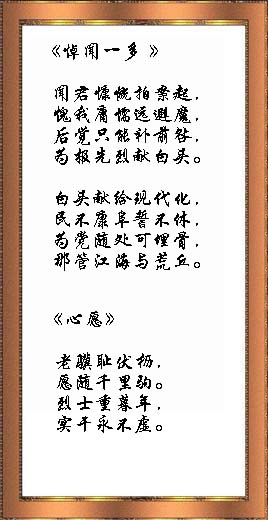 《悼闻一多》
闻君慷慨拍案起，
愧我庸懦远避魔，
后觉只能补前咎，
为报先烈献白头。
白头献给现代化，
民不康阜誓不休，
为党随处可埋骨，
那管江海与荒丘。
《心愿》
老骥耻伏枥，
愿随千里驹。
烈士重暮年，
实干永不虚。